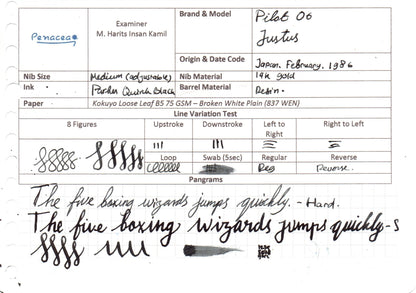 Penacea
Examiner
M. Harits Insan Kamil
Brand & Model
Pilot 06
Justus
Origin & Date Code
Japan. February, 1986
Nib Size
Medium (adjustable)
Nib Material
14k gold
Ink
Parker Quink Black
Barrel Material
Resin.
Paper
Kokuyo Loose Leaf B5 75 GSM – Broken White Plain (837 WEN)
Line Variation Test
8 Figures
Upstroke
Downstroke
Left to Right
Right to Left
Loop
Swab (5sec)
Regular
Reverse
Reg
Reverse.
Pangrams
The five boxing wizards jumps quickly. - Hard.
The five boxing wizards jumps quickly - S